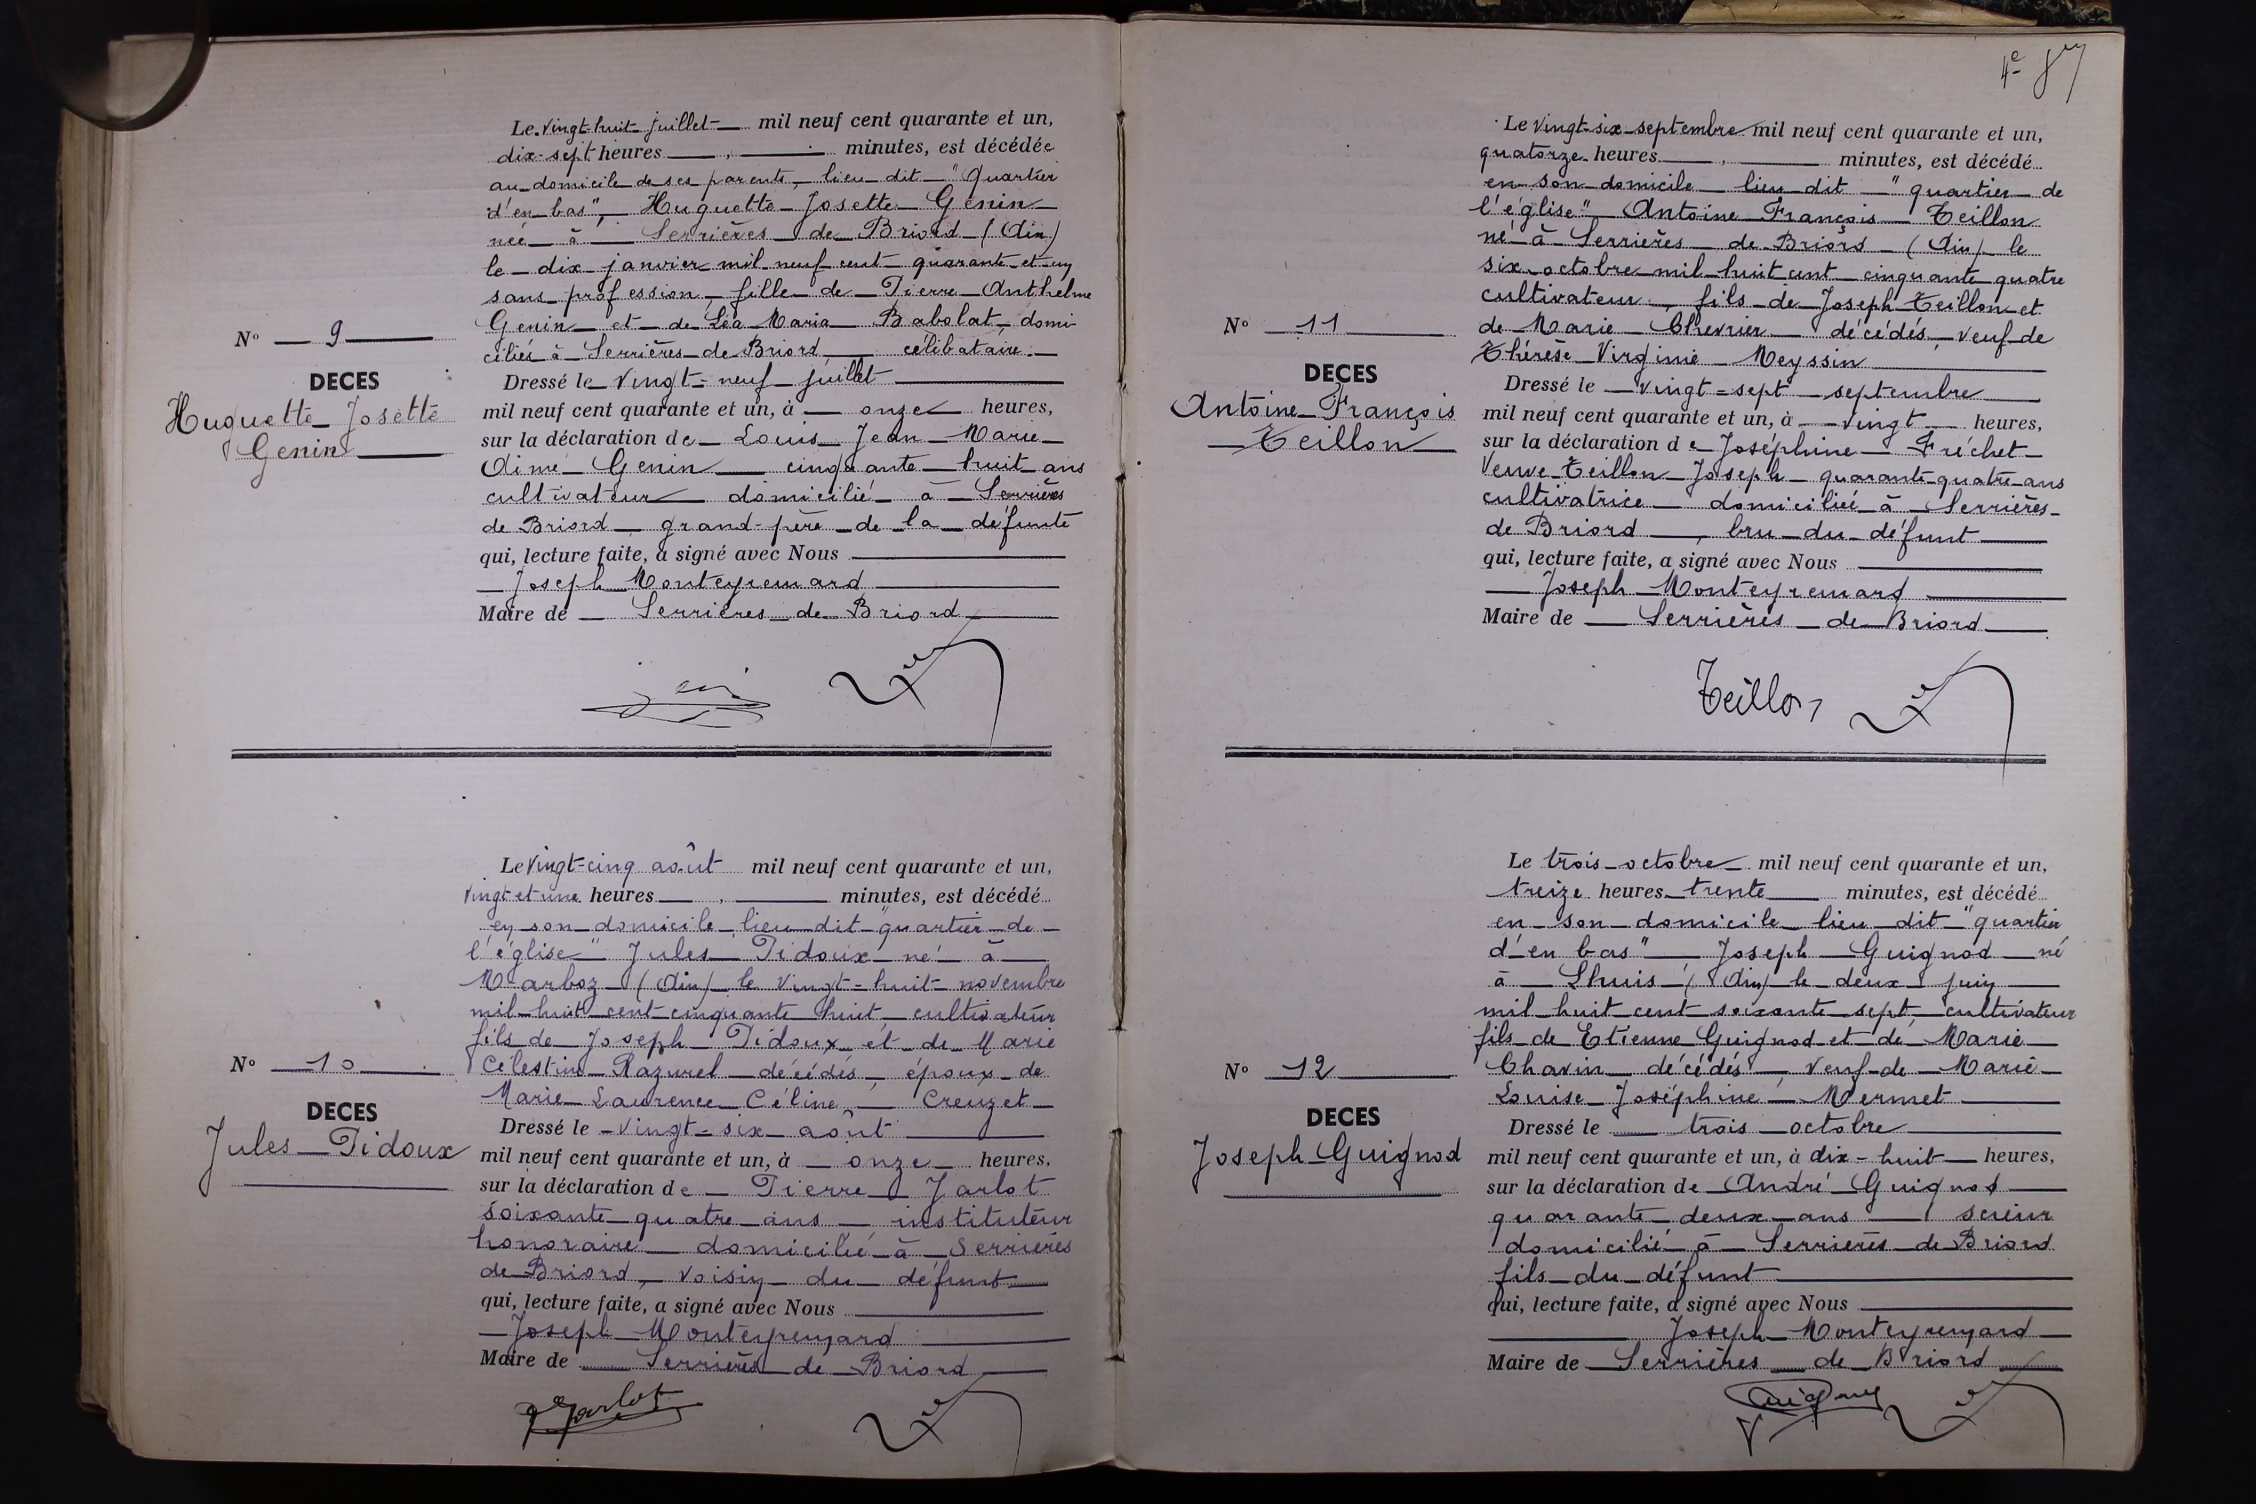 Le vingt-huit juillet mil neuf cent quarante et un,
dix-sept heures , minutes, est décédée
au domicile de ses parents, lieu dit "Quartier
d'en bas", Huguette Josette Genin
née à Serrières de Briord (Ain)
le dix janvier mil neuf cent quarante et un
sans profession, fille de Pierre Anthelme
Genin et de Léa Maria Babolat, domi-
ciliés à Serrières de Briord, célibataire.
N° 9
DECES
Huguette Josette
Genin
Dressé le vingt-neuf juillet
mil neuf cent quarante et un, à onze heures,
sur la déclaration de Louis Jean Marie
Aimé Genin cinquante huit ans
cultivateur domicilié à Serrières
de Briord grand-père de la défunte
qui, lecture faite, a signé avec Nous
Joseph Monteyremard
Maire de Serrières de Briord
Le vingt-cinq août mil neuf cent quarante et un,
vingt et une heures , minutes, est décédé
en son domicile lieu dit "quartier de
l'église" Jules Pidoux né à
Marboz (Ain) le vingt-huit novembre
mil huit cent cinquante huit, cultivateur
fils de Joseph Pidoux et de Marie
Célestine Razurel décédés, époux de
Marie Laurence Céline Creuzet
N° 10
DECES
Jules Pidoux
Dressé le vingt-six août
mil neuf cent quarante et un, à onze heures.
sur la déclaration de Pierre Jarlot
soixante quatre ans instituteur
honoraire domicilié à Serrières
de Briord, voisin du défunt
qui, lecture faite, a signé avec Nous
Joseph Monteyremard
Maire de Serrières de Briord
Jarlot
4e
Le vingt-six septembre mil neuf cent quarante et un,
quatorze heures , minutes, est décédé
en son domicile lieu dit "quartier de
l'église" Antoine François Teillon
né à Serrières de Briord (Ain) le
six octobre mil huit cent cinquante quatre
cultivateur, fils de Joseph Teillon et
de Marie Chevrier décédés, veuf de
Thérèse Virginie Meyssin
N° 11
DECES
Antoine François
Teillon
Dressé le vingt-sept septembre
mil neuf cent quarante et un, à vingt heures,
sur la déclaration de Joséphine Fréchet
veuve Teillon Joseph quarante-quatre ans
cultivatrice domiciliée à Serrières
de Briord, bru du défunt
qui, lecture faite, a signé avec Nous
Joseph Monteyremard
Maire de Serrières de Briord
Teillon
Le trois octobre mil neuf cent quarante et un,
treize heures trente minutes, est décédé
en son domicile lieu dit "quartier
d'en bas" Joseph Guignod né
à Lhuis (Ain) le deux juin
mil huit cent soixante sept, cultivateur
fils de Etienne Guignod et de Marie
Chavin décédés, veuf de Marie
Louise Joséphine Mermet
N° 12
DECES
Joseph Guignod
Dressé le trois octobre
mil neuf cent quarante et un, à dix-huit heures,
sur la déclaration de André Guignod
quarante deux ans scieur
domicilié à Serrières de Briord
fils du défunt
qui, lecture faite, a signé avec Nous
Joseph Monteyremard
Maire de Serrières de Briord